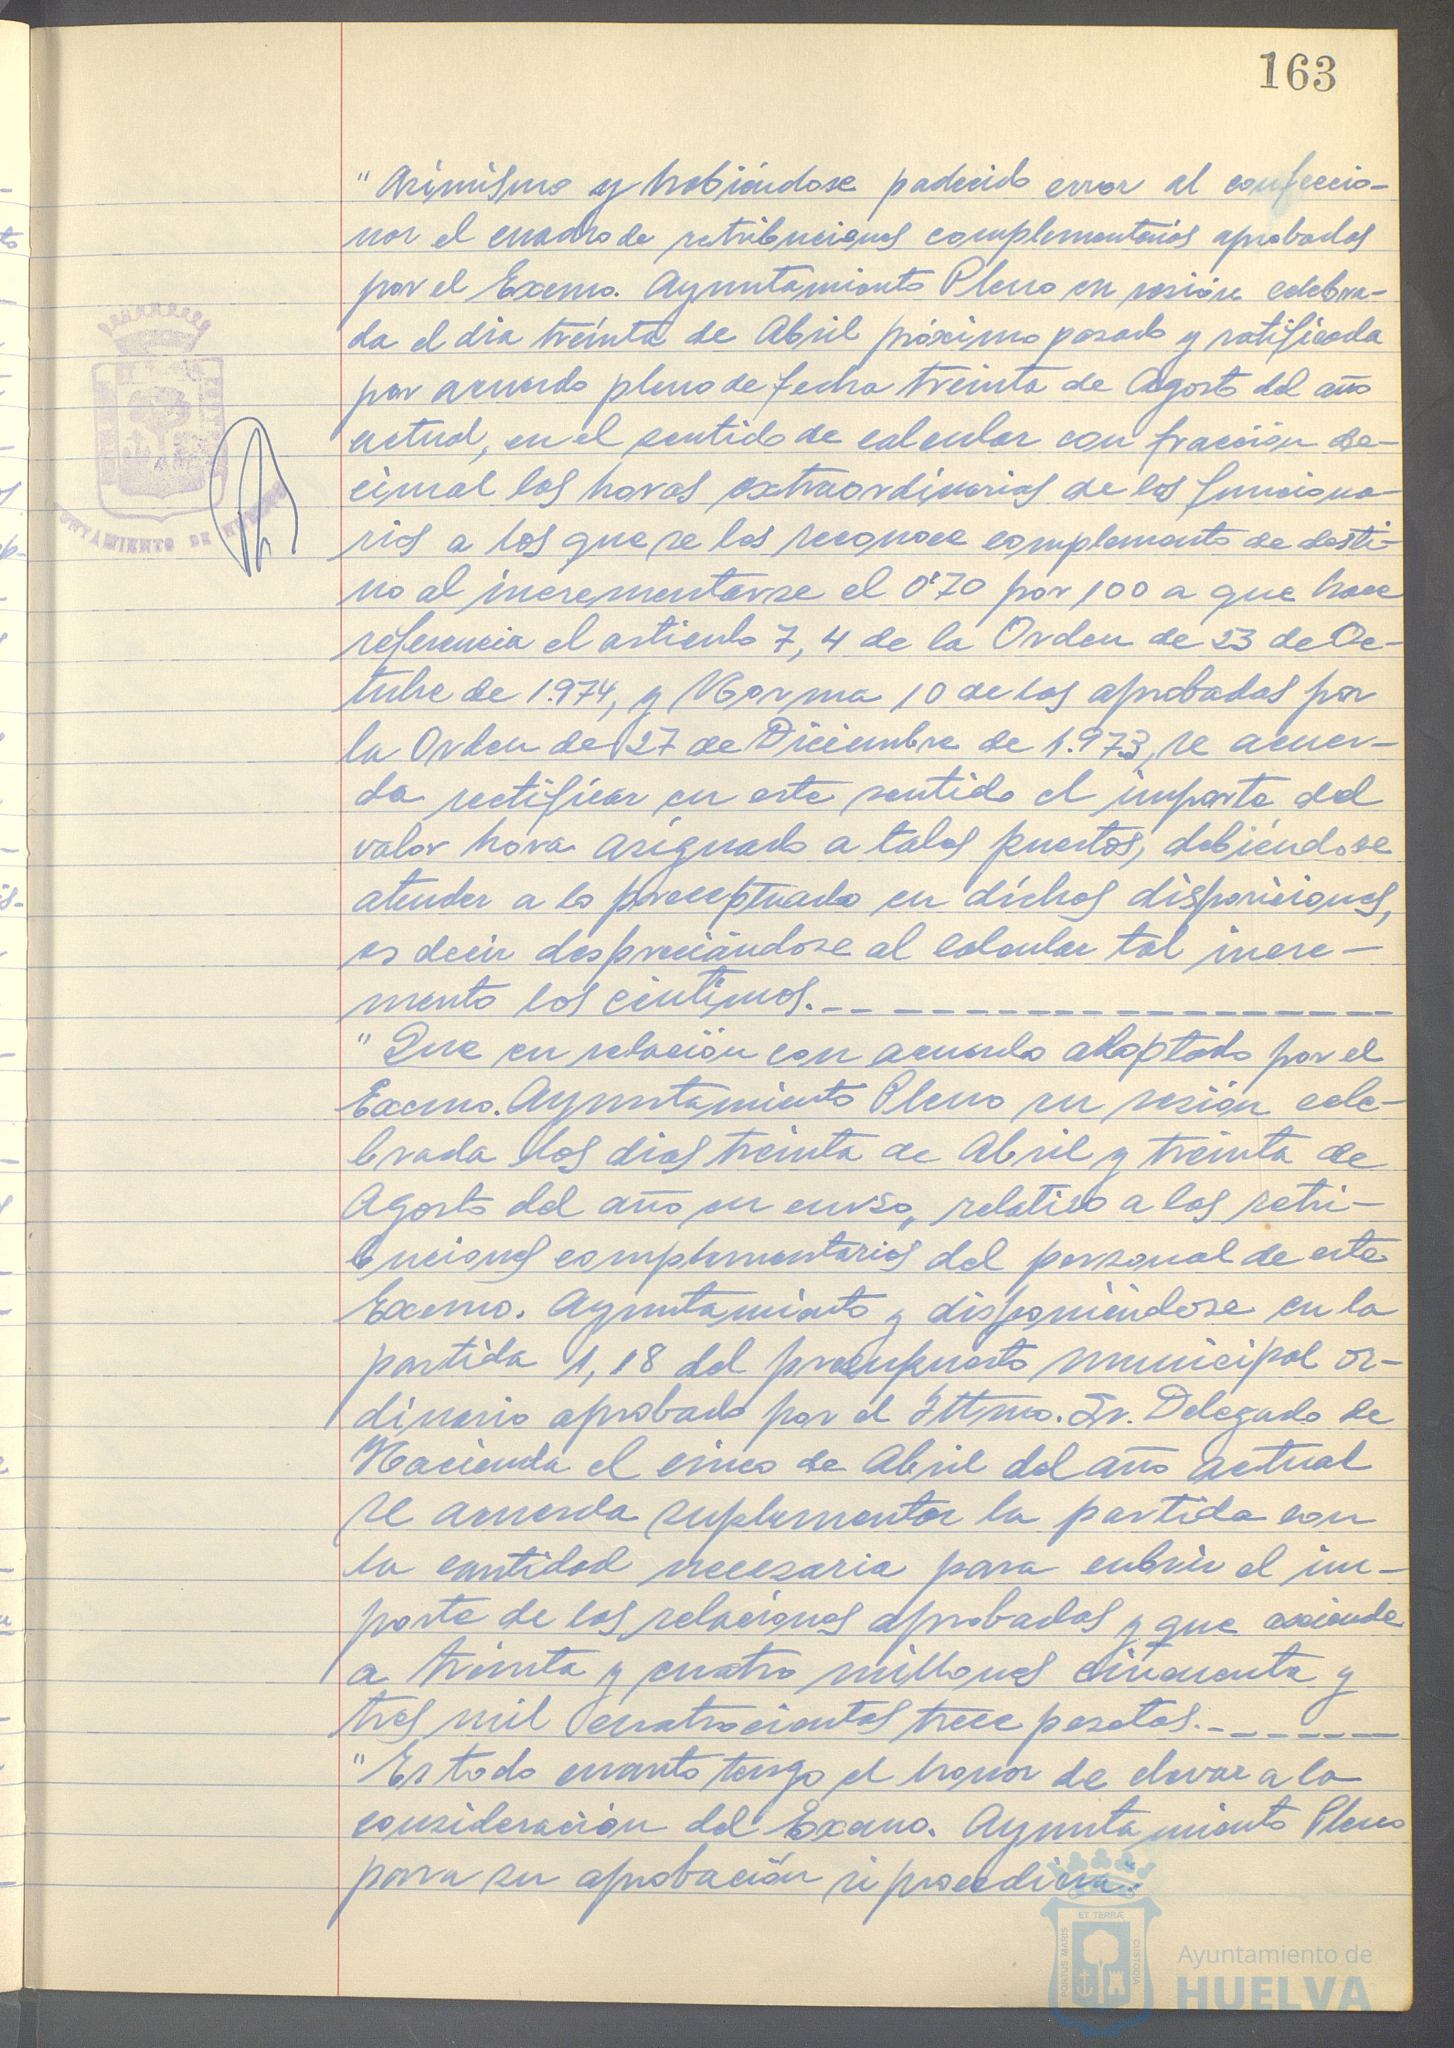 163
"Asimismo y habiéndose padecido error al confeccio-
nar el cuadro de retribuciones complementarias aprobadas
por el Excmo. Ayuntamiento Pleno en sesión celebra-
da el dia treinta de Abril próximo pasado y ratificada
por acuerdo pleno de fecha treinta de Agosto del año
actual, en el sentido de calcular con fracción de-
cimal las horas extraordinarias de los funciona-
rios a los que se les reconoce complemento de desti-
no al incrementarse el 0'70 por 100 a que hace
referencia el articulo 7, 4 de la Orden de 23 de Oc-
tubre de 1.974, y Norma 10 de las aprobadas por
la Orden de 27 de Diciembre de 1.973, se acuer-
da rectificar en este sentido el importe del
valor hora asignado a tales puestos, debiéndose
atender a lo preceptuado en dichas disposiciones,
es decir despreciándose al calcular tal incre-
mento los céntimos.
"Que en relación con acuerdo adoptado por el
Excmo. Ayuntamiento Pleno en sesión cele-
brada los dias treinta de Abril y treinta de
Agosto del año en curso, relativo a las retri-
buciones complementarias del personal de este
Excmo. Ayuntamiento y disponiéndose en la
partida 1,18 del presupuesto municipal or-
dinario aprobado por el Iltmo. Sr. Delegado de
Hacienda el cinco de Abril del año actual
se acuerda suplementar la partida con
la cantidad necesaria para cubrir el im-
porte de las relaciones aprobadas y que asciende
a treinta y cuatro millones cincuenta y
tres mil cuatrocientas trece pesetas.
"Es todo cuanto tengo el honor de elevar a la
consideración del Excmo. Ayuntamiento Pleno
para su aprobación si procediera".
AYUNTAMIENTO DE HUELVA
PORTUS MARIS ET TERRAE CUSTODIA
Ayuntamiento de
HUELVA